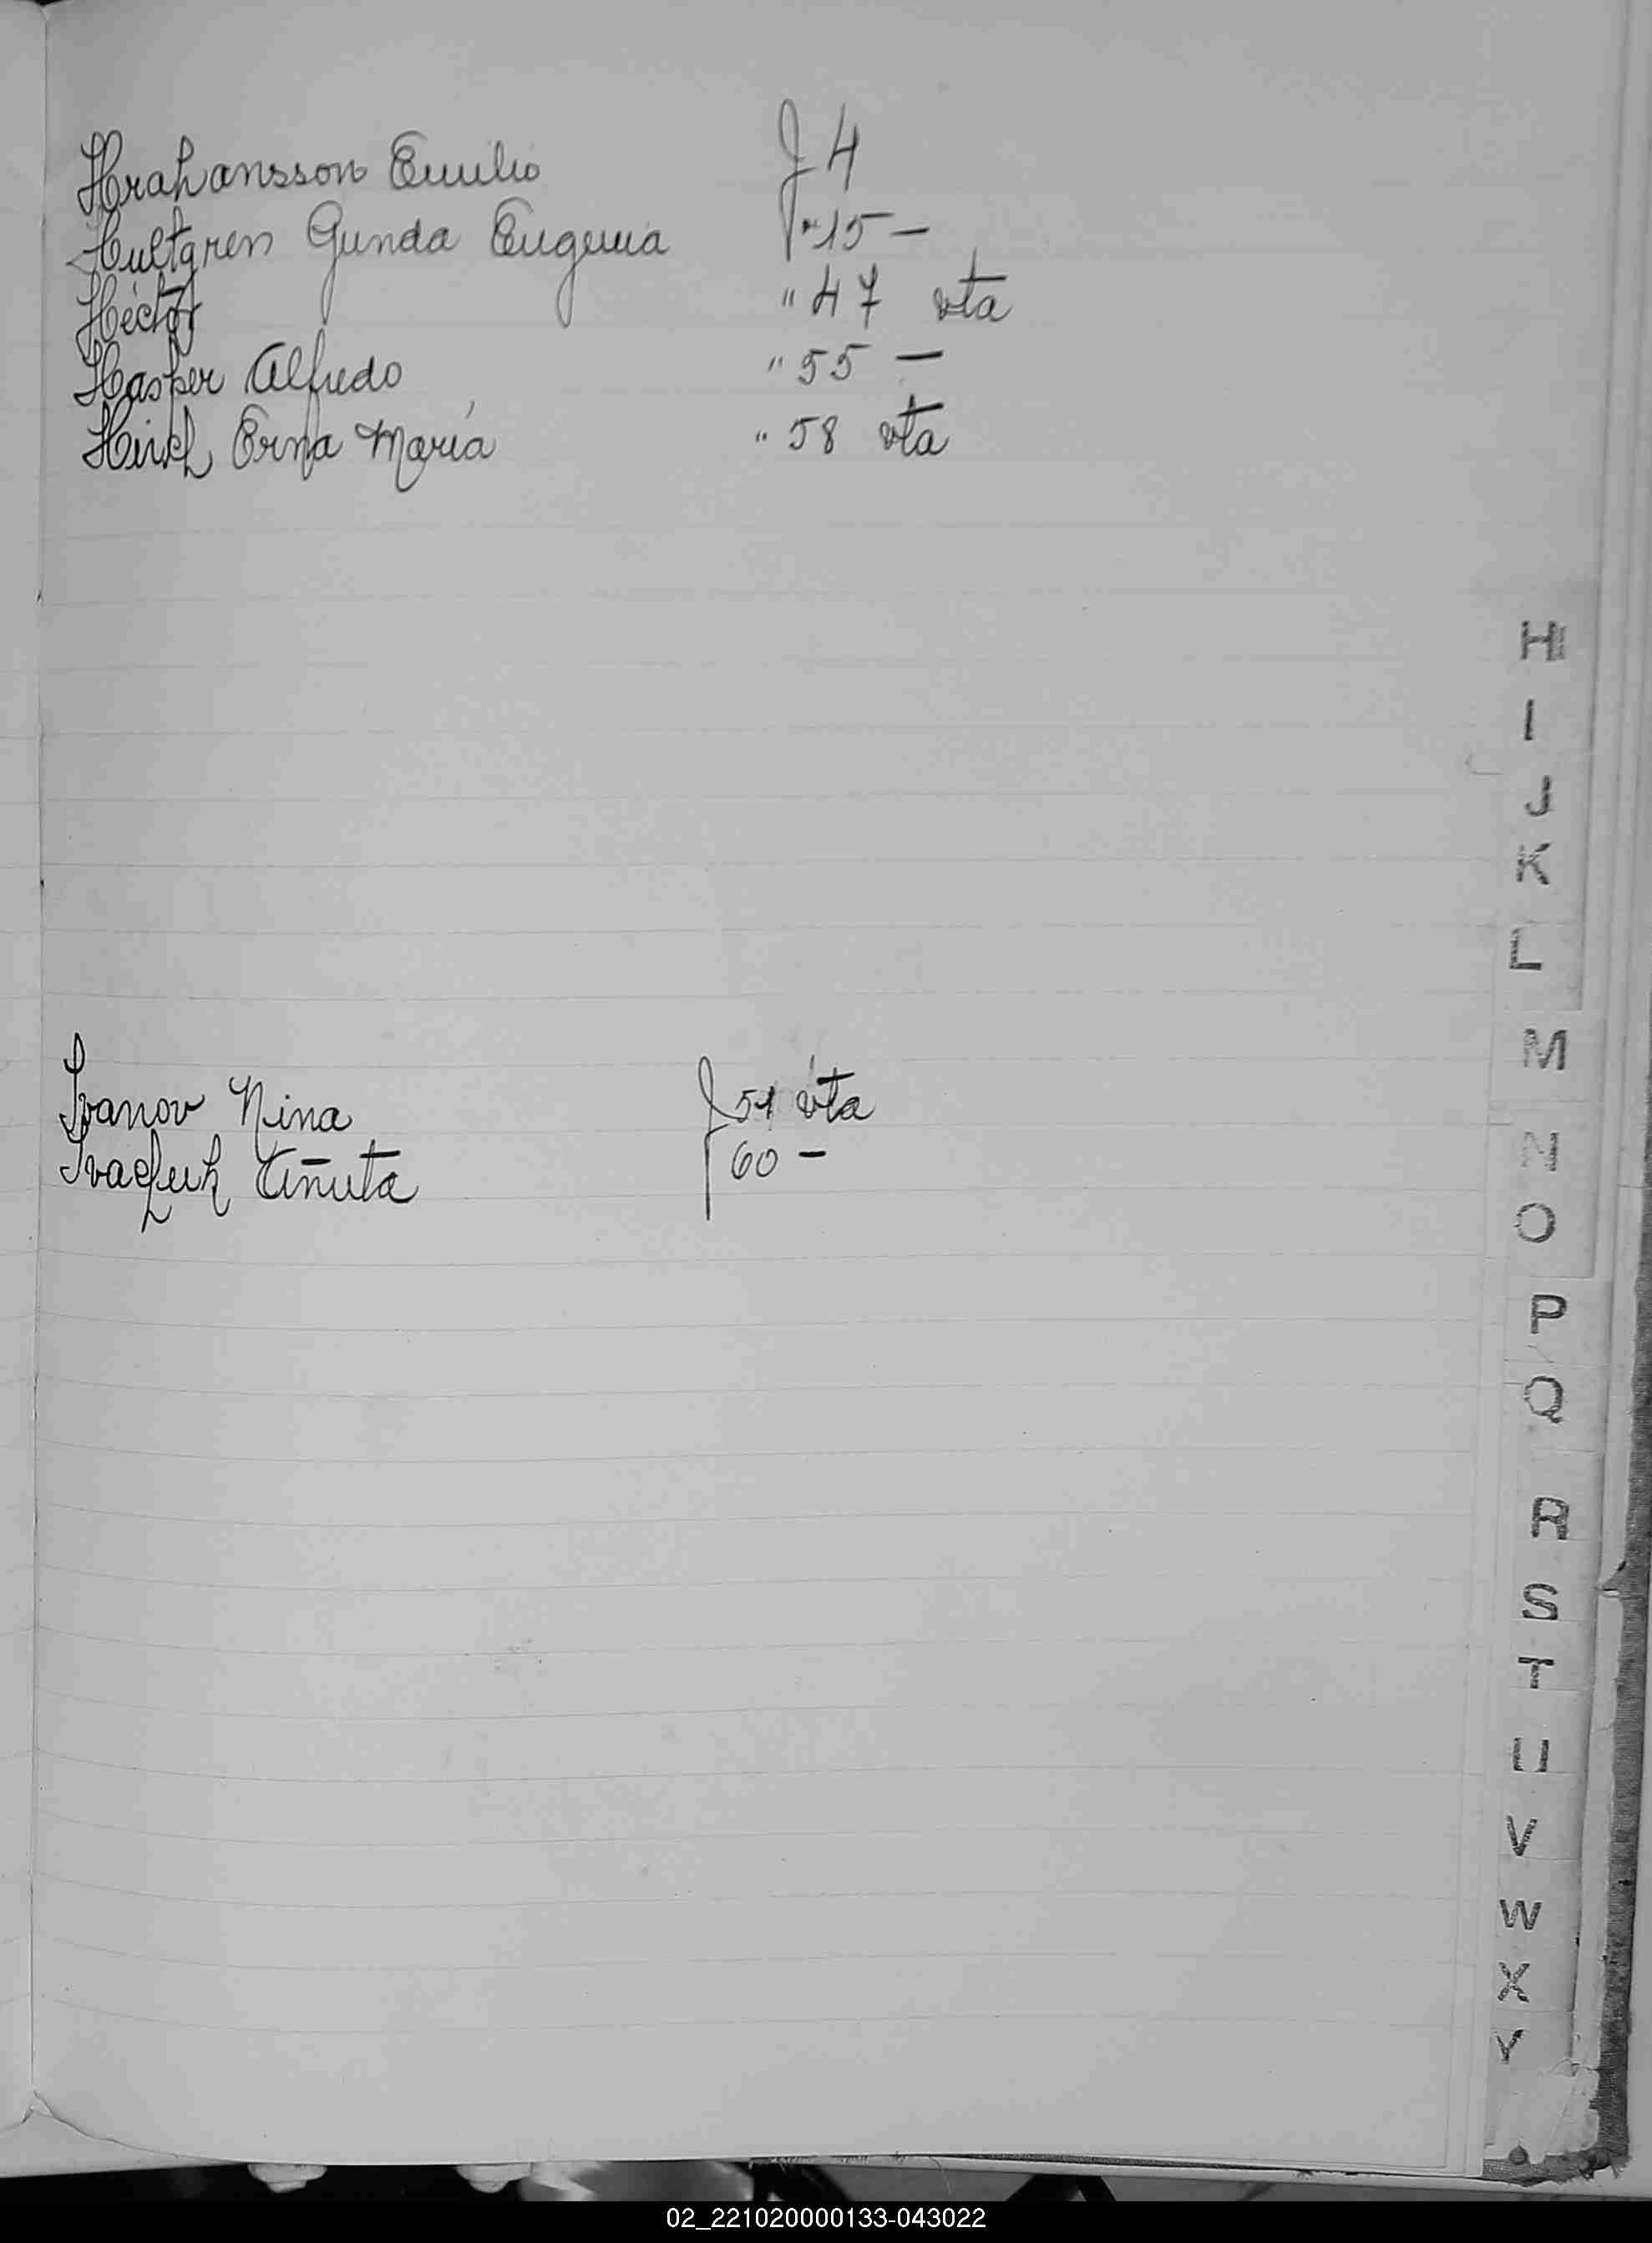 Hrahansson Emilio F 4
Hultgren Gunda Eugenia " 15 —
Héctor " 47 vta
Hasper Alfredo " 55 —
Hirch Erna María " 58 vta
H
I
J
K
L
M
Ivanov Nina F 51 vta
Anuta 60 —
N
O
P
Q
R
S
T
U
V
W
X
Y
02_221020000133-043022